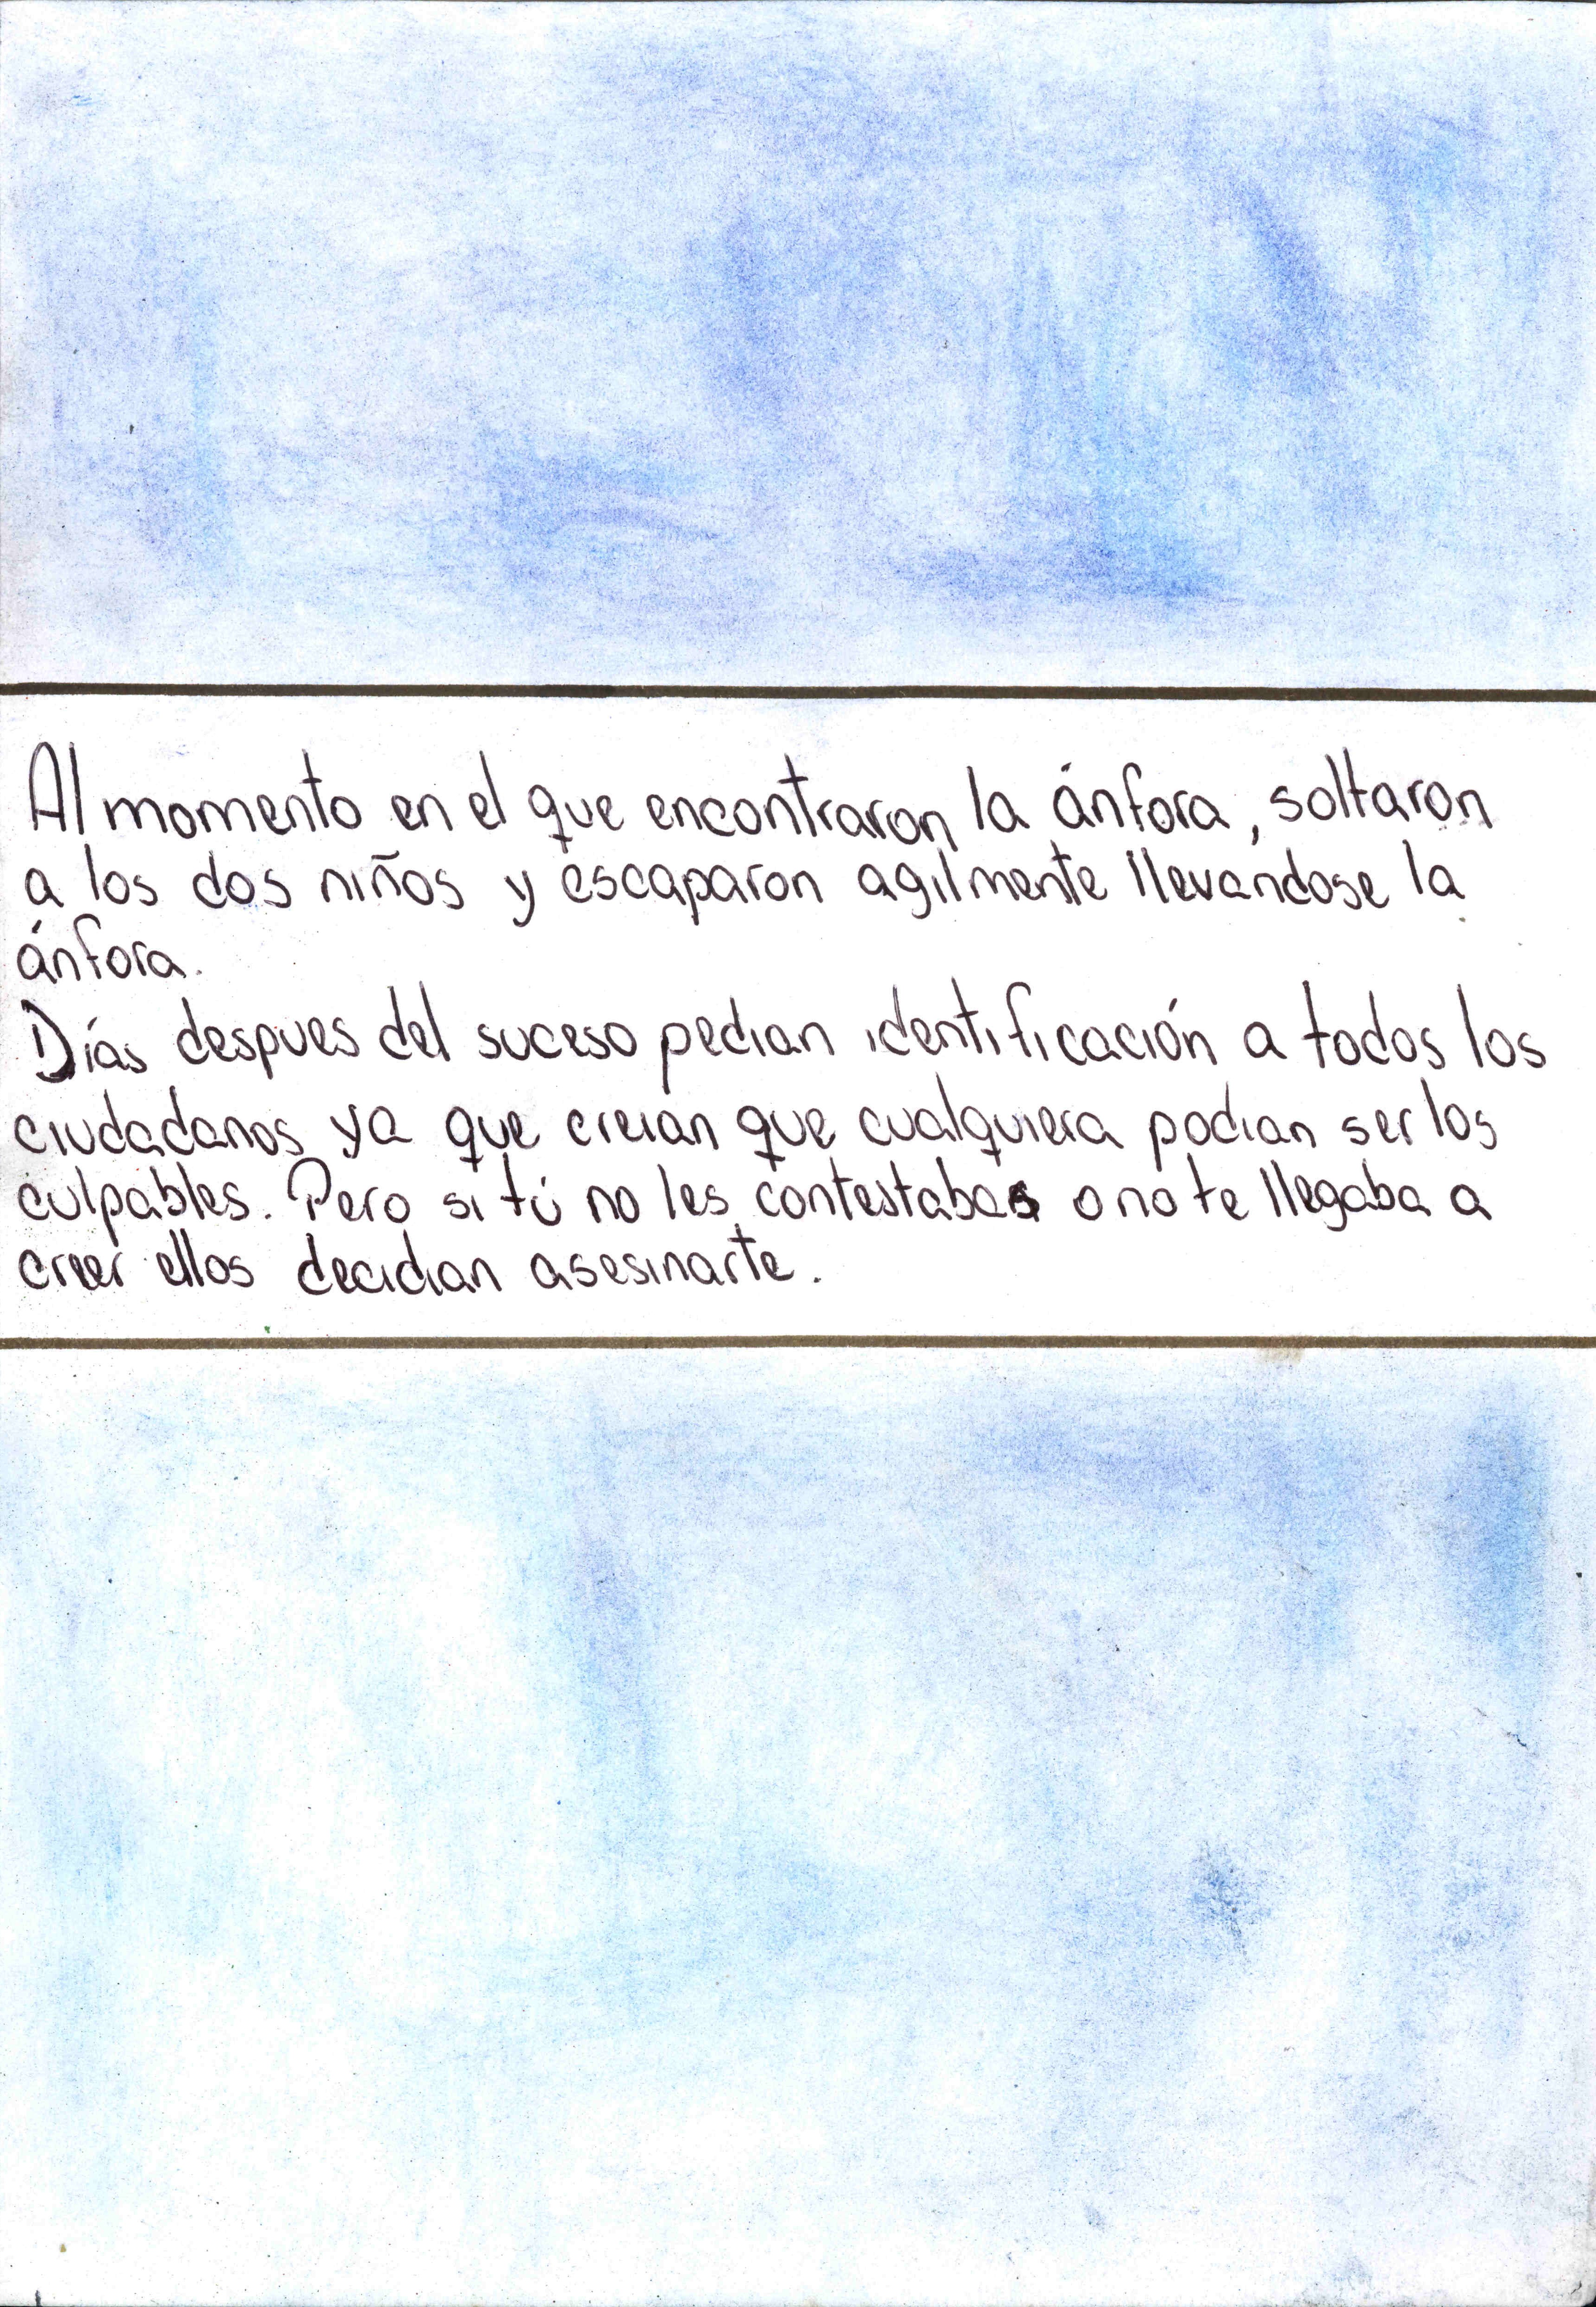 Al momento en el que encontraron la ánfora, soltaron
a los dos niños y escaparon agilmente llevandose la
ánfora.
Días despues del suceso pedian identificación a todos los
ciudadanos ya que creian que cualquiera podian ser los
culpables. Pero si tú no les contestabas o no te llegaba a
creer ellos decidian asesinarte.